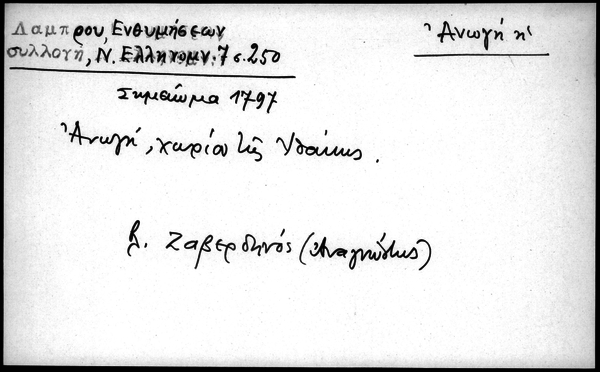 Λαμπρου, Ενθυμήσεων
συλλογή, Ν. Ελληνομν. 7 σ. 250
Ἀνωγή ἡ
Σημείωμα 1797
Ἀνωγή, χωρίον τῆς Ἰθάκης.
βλ. Ζαβερδηνός (Ἀναγνώστης)